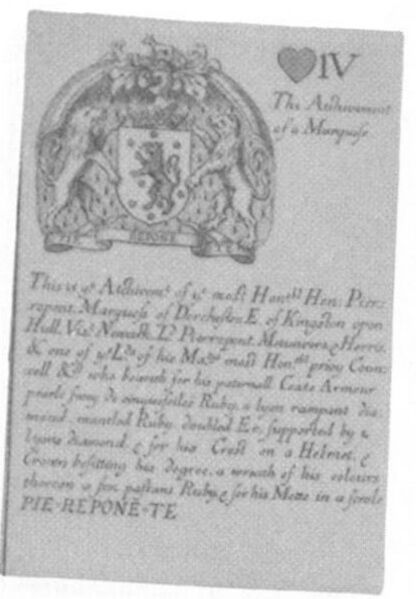 IV
The Atchivement
of a Marquess
PIE REPONE TE
This is yᵉ Atchivemᵗ of yᵉ most Honᵇˡᵉ Hen: Pier:
repont, Marquess of Dorchester, E. of Kingston upon
Hull, Viᵗ Newark, Lᵈ Pierrepont, Manvers, & Herris,
& one of yᵉ Lᵈˢ of his Maᵗⁱᵉˢ most Honᵇˡᵉ privy Coun:
cell &cᵃ who beareth for his paternall Coate Armour
pearle semy de cinquefoiles Ruby, a lyon rampant dia
mond, mantled Ruby doubled Er, supported by 2
lyons diamond, & for his Crest on a Helmet, &
Crown befitting his degree, a wreath of his colours
thereon a fox passant Ruby, & for his Motto in a scrole
PIE-REPONE-TE